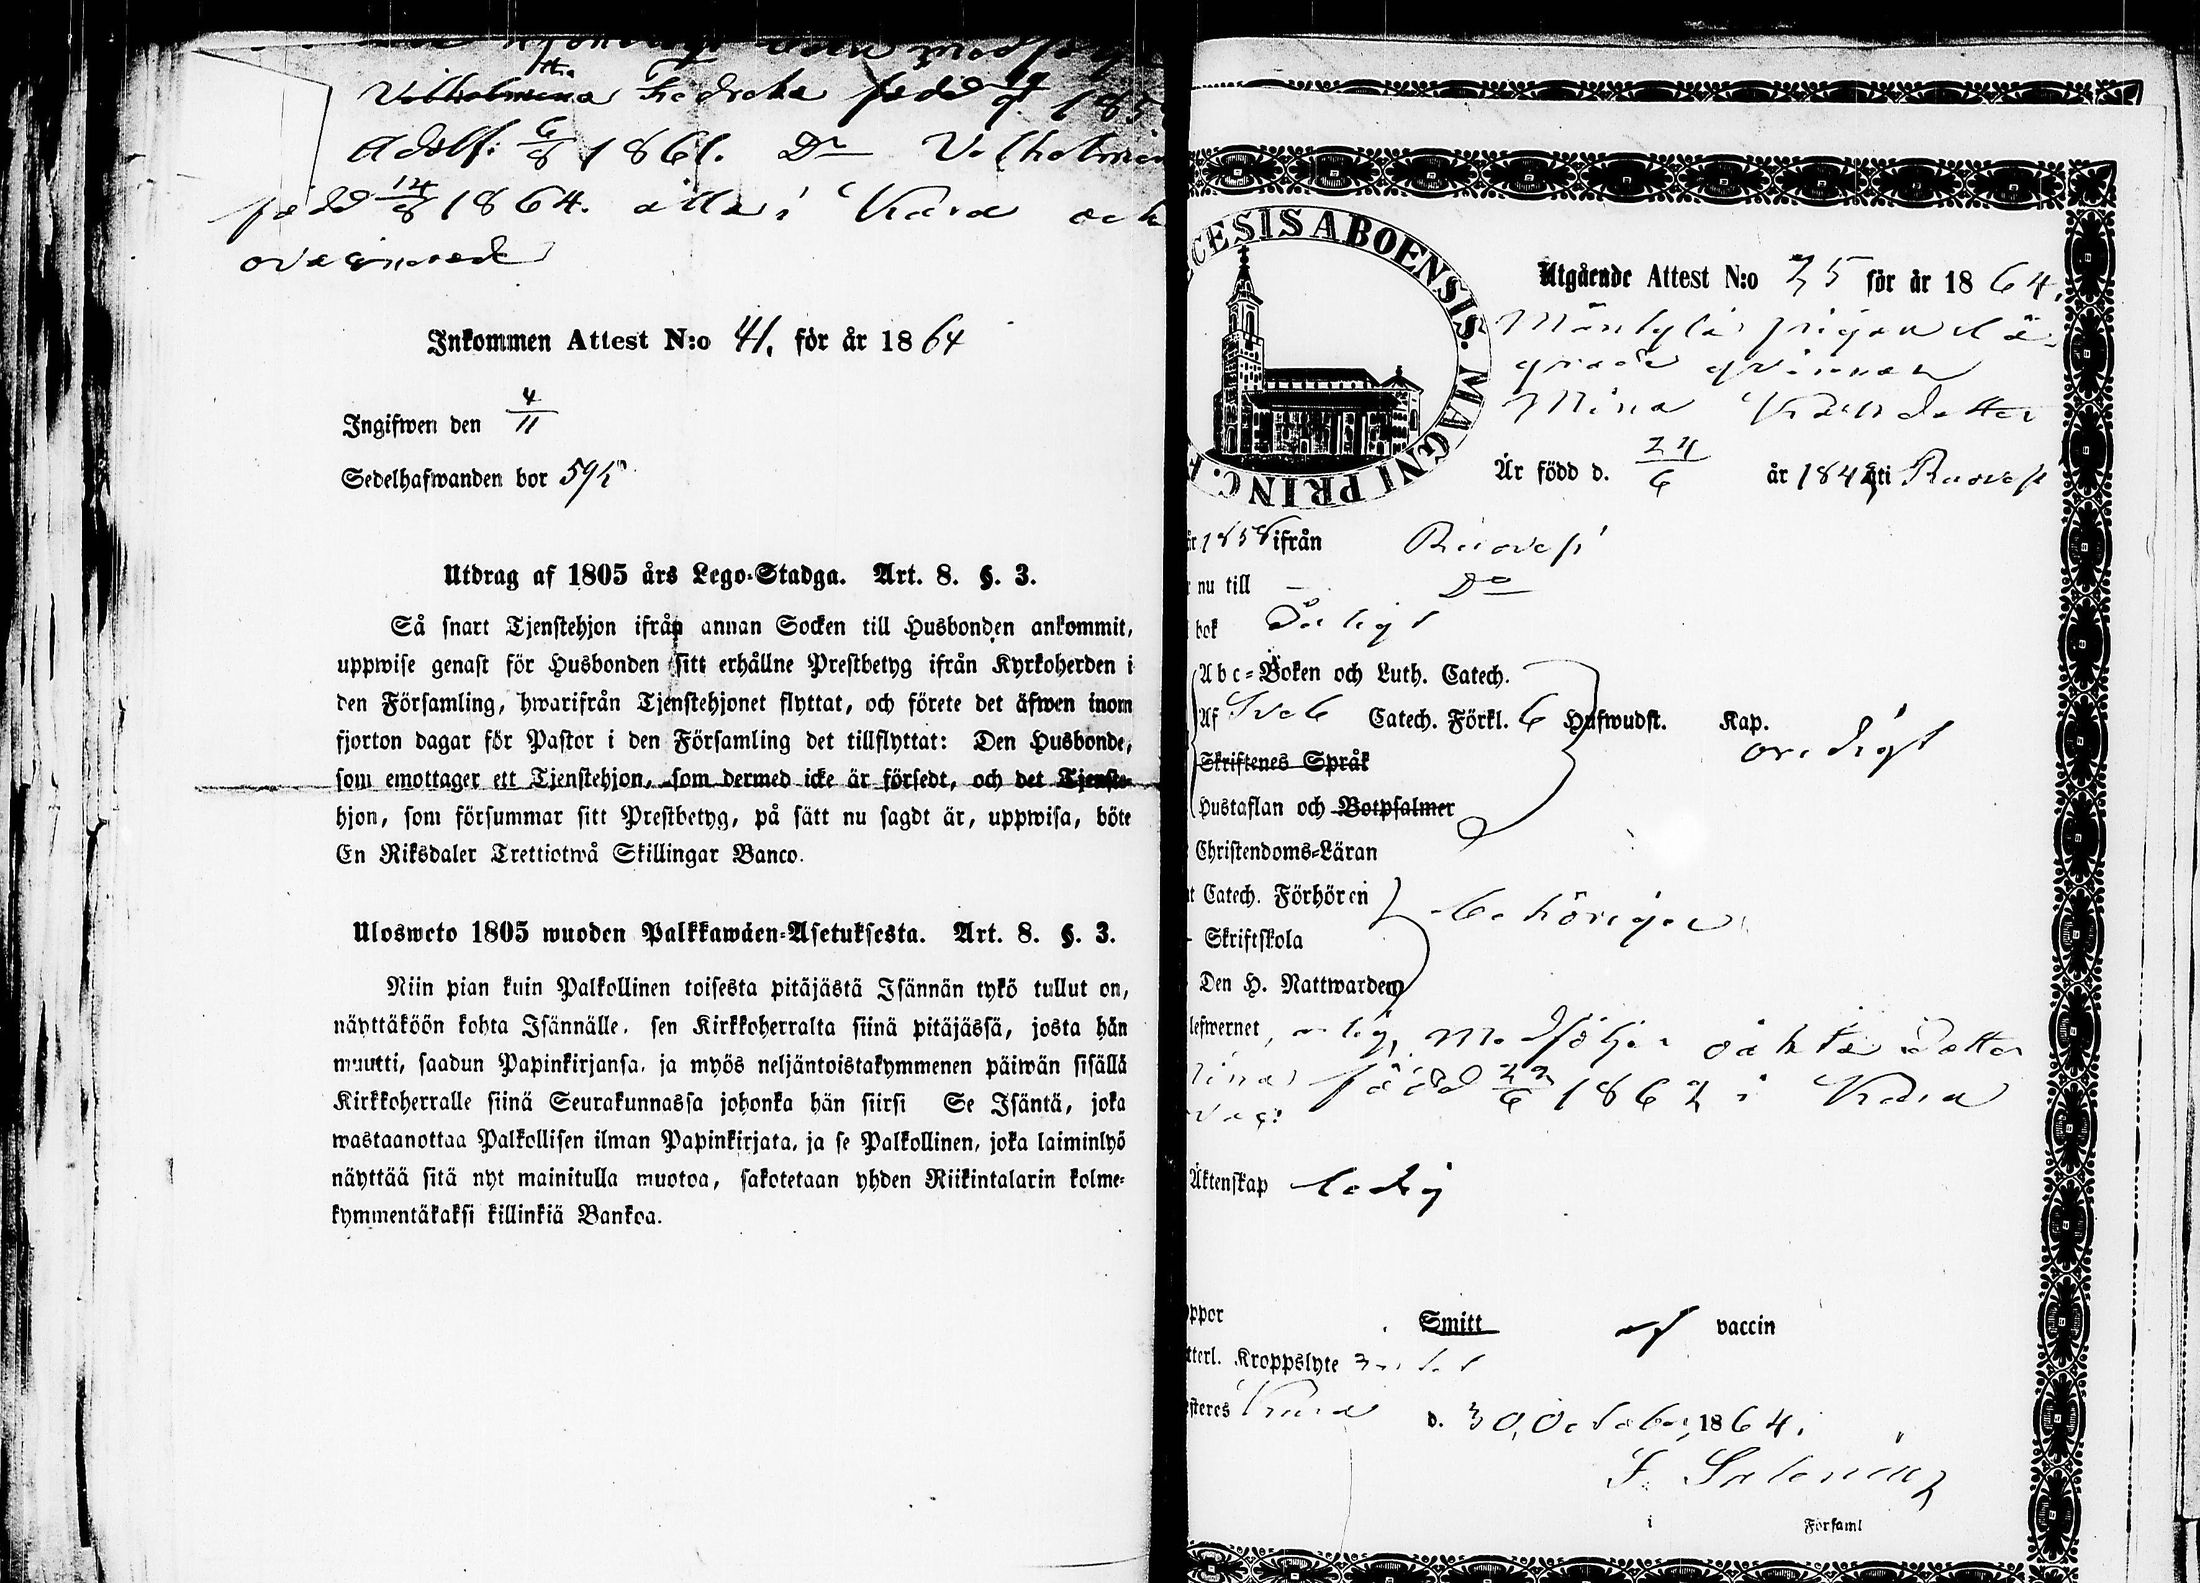 Fredreka född
Adolf. 6/8 1861. Do Vilhelmin
född 14/8 1864. alla i Kura och
Inkommen Attest N:o 41. för år 1864
Ingifwen den 4/11
Sedelhafwanden bor 592
Utdrag af 1805 års Lego-Stadga. Art. 8. §. 3.
Så snart Tjenstehjon ifrån annan Socken till Husbonden ankommit,
uppwise genast för Husbonden sitt erhållne Prestbetyg ifrån Kyrkoherden i
den Församling, hwarifrån Tjenstehjonet flyttat, och förete det äfwen inom
fjorton dagar för Pastor i den Församling det tillflyttat: Den Husbonde,
som emottager ett Tjenstehjon, som dermed icke är försedt, och det Tjenste-
hjon, som försummar sitt Prestbetyg, på sätt nu sagdt är, uppwisa, böte
En Riksdaler Trettiotwå Skillingar Banco.
Ulosweto 1805 wuoden Palkkawäen-Asetuksesta. Art. 8. §. 3.
Niin pian kuin Palkollinen toisesta pitäjästä Isännän tykö tullut on,
näyttäköön kohta Isännälle, sen Kirkkoherralta siinä pitäjässä, josta hän
muutti, saadun Papinkirjansa, ja myös neljäntoistakymmenen päiwän sisällä
Kirkkoherralle siinä Seurakunnassa johonka hän siirsi Se Isäntä, joka
wastaanottaa Palkollisen ilman Papinkirjata, ja se Palkollinen, joka laiminlyö
näyttää sitä nyt mainitulla muotoa, sakotetaan yhden Riikintalarin kolme-
kymmentäkaksi killinkiä Bankoa.
CESIS ABOENSIS. MAGNI PRINC. F
Utgående Attest N:o 25 för år 1864.
Mäntylä pigan lä-
grade qvinnan
Mina Karlsdotter
Är född d. 24/6 år 1842 i Ruovesi
år 1858 ifrån Ruovesi
nu till Do
bok Dåligt
Abc-Boken och Luth. Catech.
Af Sveb Catech. Förkl. 6 Hufwudst. Kap.
oredigt
Skriftenes Språk
Hustaflan och Botpsalmer
Christendoms-Läran
t Catech. Förhören
behörigen
Skriftskola
Den H. Nattwarden
lefwernet, medföljer oäkta dotter
född 22/6 1862 i Kura
Äktenskap ledig
oppor Smitt af vaccin
tterl. Kroppslyte
esteres Kura d. 30 October 1864.
i Församl